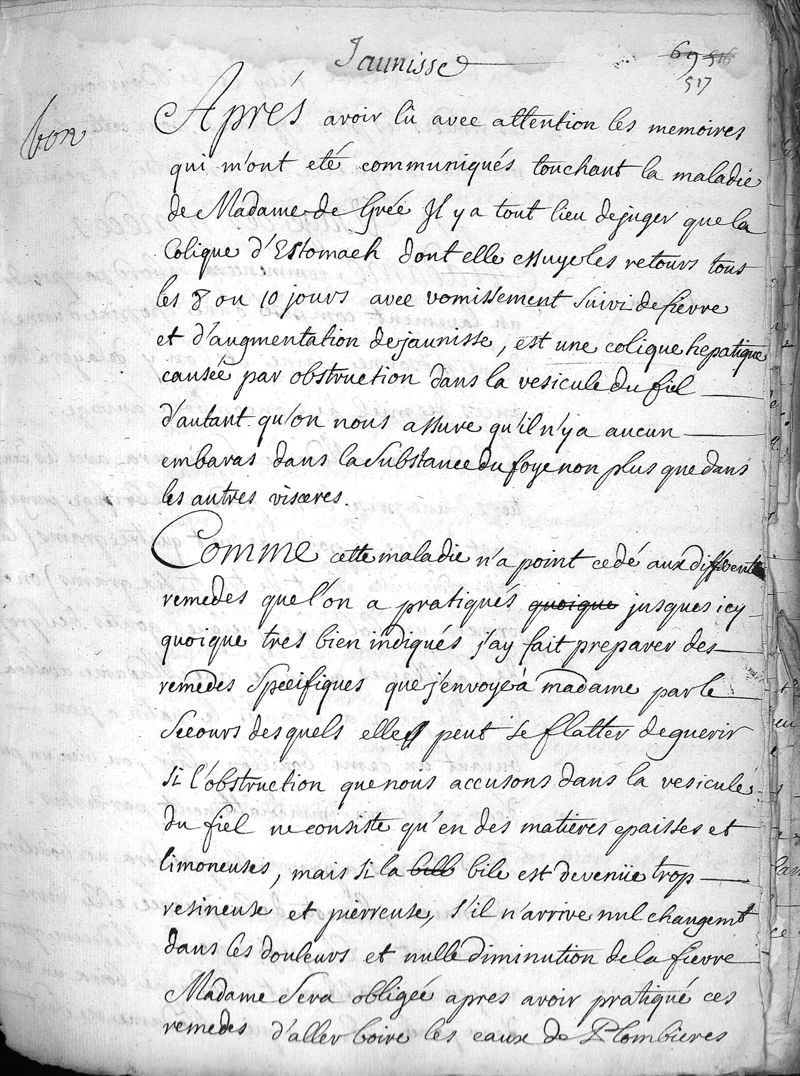 Jaunisse
69 516
517
bon
Aprés avoir lû avec attention les memoires
qui m'ont eté communiqués touchant la maladie
de Madame de Grée Il y a tout lieu de juger que la
Colique d'Estomach dont elle essuye les retours tous
les 8 ou 10 jours avec vomissement suivi de fievre
et d'augmentation de jaunisse, est une colique hepatique
causée par obstruction dans la vesicule du fiel
d'autant qu'on nous assure qu'il n'y a aucun
embaras dans la Substance du foye non plus que dans
les autres visceres.
Comme cette maladie n'a point cedé aux différents
remedes que l'on a pratiqués quoique jusques icy
quoique tres bien indiqués j'ay fait preparer des
remedes Specifiques que j'envoye à madame par le
Secours desquels elle peut se flatter de guerir
si l'obstruction que nous accusons dans la vesicule
du fiel ne consiste qu'en des matières epaisses et
limoneuses, mais si la bill bile est devenüe trop
resineuse et pierreuse, s'il n'arrive nul changemt
dans les douleurs et nulle diminution de la fievre
Madame Sera obligée apres avoir pratiqué ces
remedes d'aller boire les eaux de Plombieres